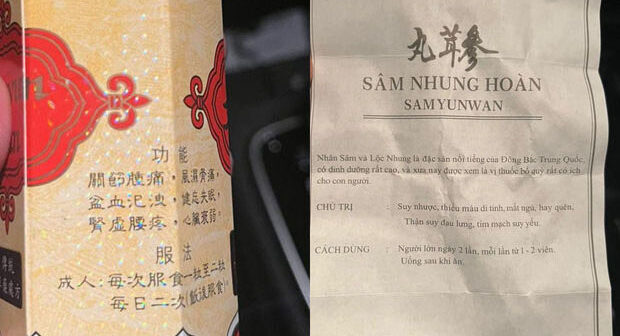 功能
關節腫痛，風濕骨痛，
盆血，健忘失眠，
腎虛腰疼，心臟衰弱。
服法
成人：每次服食一粒至二粒
每日二次(飯後服食)
丸茸參
SÂM NHUNG HOÀN
SAMYUNWAN
Nhân Sâm và Lộc Nhung là đặc sản nổi tiếng của Đông Bắc Trung Quốc,
có dinh dưỡng rất cao, và xưa nay được xem là vị thuốc bổ quý rất có ích
cho con người.
CHỦ TRỊ : Suy nhược, thiếu máu di tinh, mất ngủ, hay quên,
Thận suy đau lưng, tim mạch suy yếu.
CÁCH DÙNG : Người lớn ngày 2 lần, mỗi lần từ 1 - 2 viên.
Uống sau khi ăn.